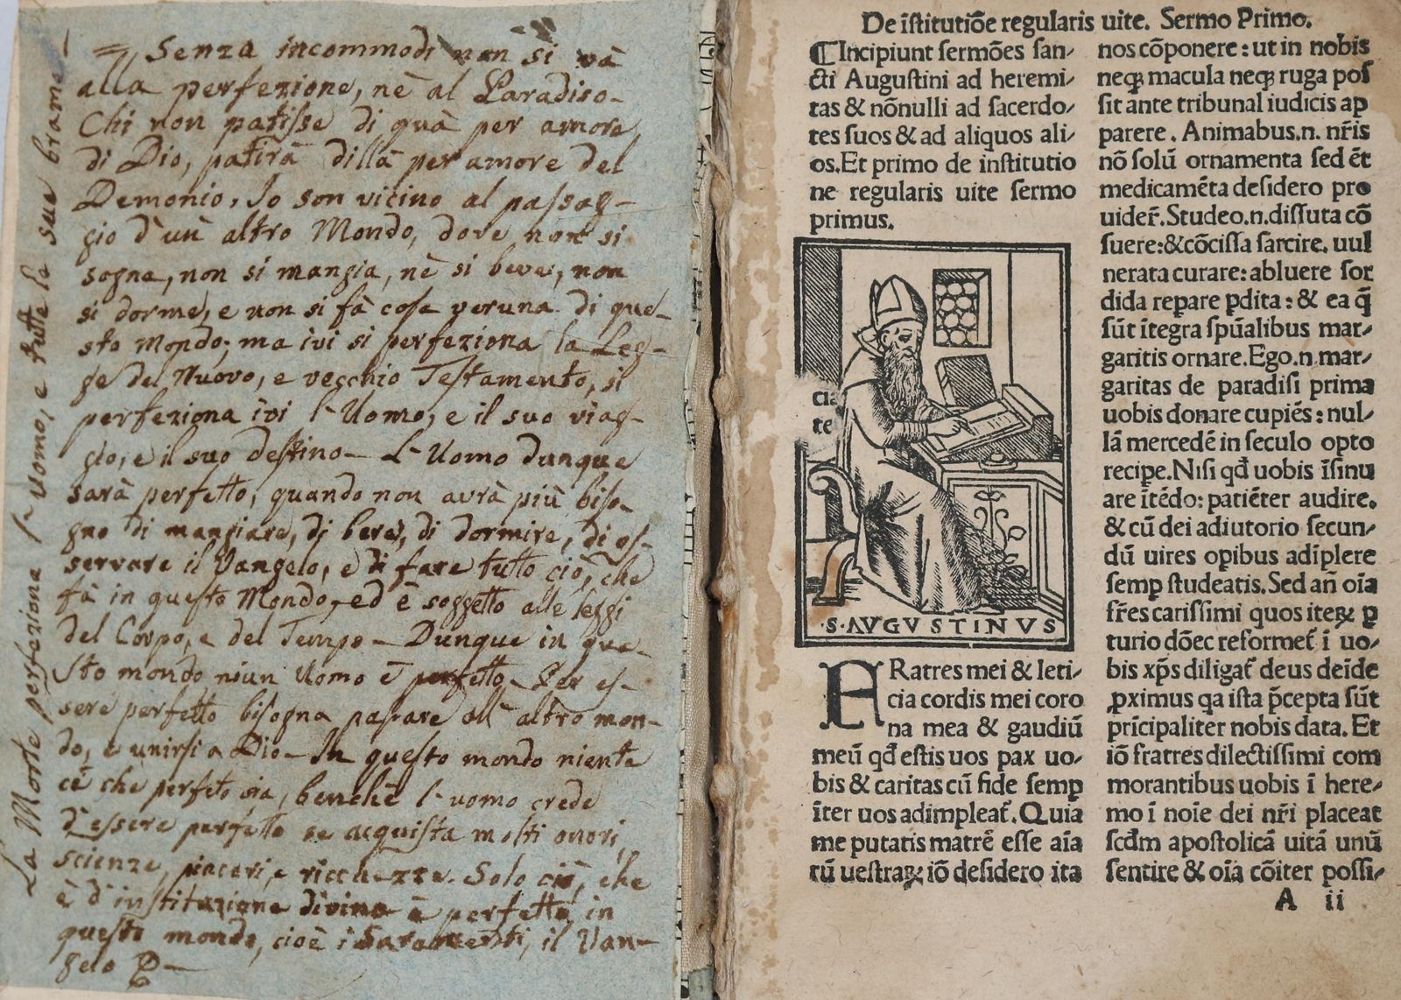 = Senza incommodi non si và
alla perfezione, nè al Paradiso-
Chi non patisse di quà per amore
di Dio, patirà dillà per amore del
Demonio. Io son vicino al passag-
gio d'un altro Mondo, dove non si
sogna, non si mangia, nè si beve, non
si dorme, e non si fà cosa veruna di que-
sto Mondo; ma ivi si perfeziona la Leg-
ge del Nuovo, e vecchio Testamento, si
perfeziona ivi l'Uomo, e il suo viag-
gio, e il suo destino- L'Uomo dunque
sarà perfetto, quando non avrà più biso-
gno di mangiare, di bere, di dormire, di os-
servare il Vangelo, e di fare tutto ciò, che
fà in questo Mondo, ed è soggetto alle leggi
del Corpo, e del Tempo- Dunque in que-
sto mondo niun Uomo è perfetto- Per es-
sere perfetto bisogna passare all'altro mon-
do, e unirsi a Dio- In questo mondo niente
c'è che perfeto sia, benchè l'uomo crede
d'essere perfetto se acquista molti onori,
scienze, piaceri, e ricchezze. Solo ciò, che
è d'instituzione divina è perfetto in
questo mondo, cioè i Saramenti, il Van-
gelo
La Morte perfeziona l'uomo, e tutte le sue brame-
De īstitutiōe regularis uite. Sermo Primo.
¶Incipiunt sermōes san-
cti Augustini ad heremi-
tas & nōnulli ad sacerdo-
tes suos & ad aliquos ali-
os. Et primo de institutio
ne regularis uite sermo
primus.
cia
te
·S·AVGVSTINVS
FRatres mei & leti-
cia cordis mei coro
na mea & gaudiū
meū qđ estis uos pax uo-
bis & caritas cū fide semꝑ
īter uos adimpleat̄. Quia
me putatis matrē esse aīa
rū uestraꝝ iō desidero ita
nos cōponere: ut in nobis
neqꝫ macula neqꝫ ruga pos
sit ante tribunal iudicis ap
parere. Animabus .n. nr̄is
nō solū ornamenta sed ēt
medicamēta desidero pro
uider̄. Studeo .n. dissuta cō
suere: & cōcissa sarcire. uul
nerata curare: abluere sor
dida repare ꝑdita: & ea q̄
sūt ītegra spūalibus mar-
garitis ornare. Ego .n. mar-
garitas de paradisi prima
uobis donare cupiēs: nul-
lā mercedē in seculo opto
recipe. Nisi qđ uobis īsinu
are ītēdo: patiēter audire.
& cū dei adiutorio secun-
dū uires opibus adīplere
semꝑ studeatis. Sed añ oīa
fr̄es carissimi quos iteꝝ ꝑ
turio dōec reformet̄ ī uo-
bis xp̄s diligat̄ deus deīde
ꝓximus qa ista p̄cepta sūt
prīcipaliter nobis data. Et
iō fratres dilectissimi com
morantibus uobis ī here-
mo ī noīe dei nr̄i placeat
scđm apostolicā uitā unū
sentire & oīa cōiter possi-
A ii